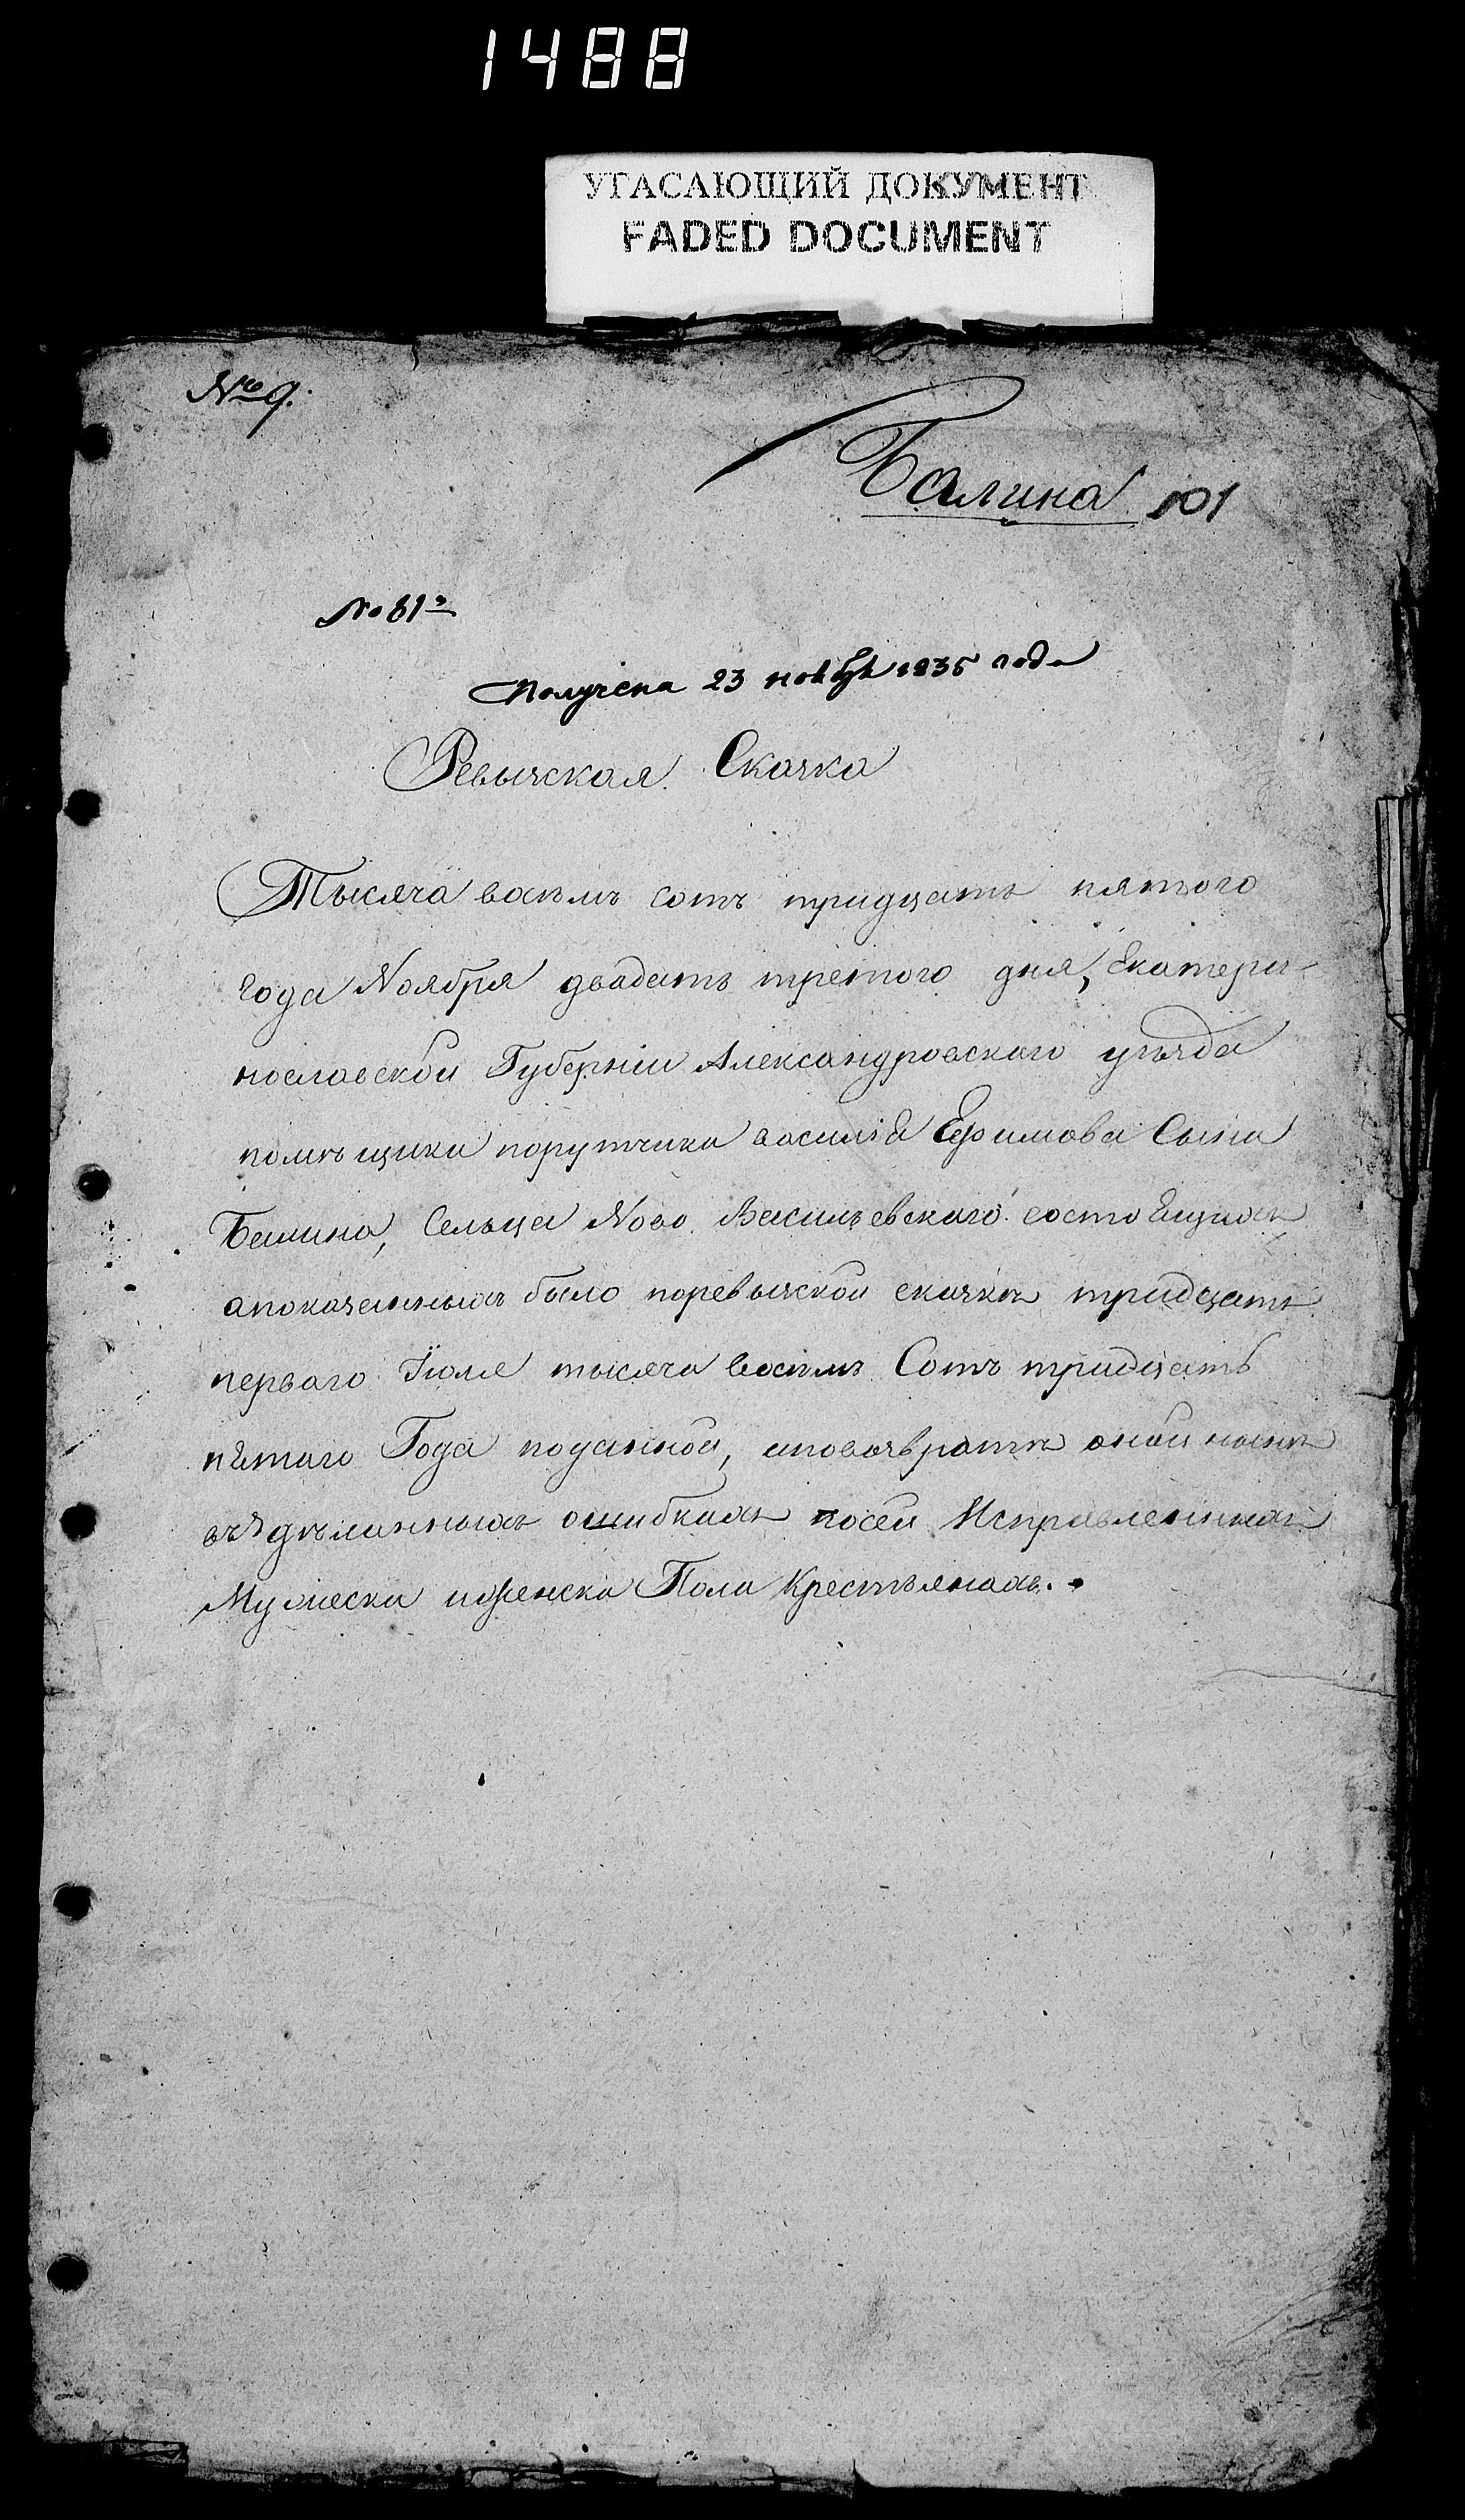 1488
УГАСАЮЩИЙ ДОКУМЕНТ
FADED DOCUMENT
№ 9.
Балина 101
№ 81
Получена 23 ноября 1835 года
Ревыская Скаска
Тысяча восемъ сотъ тридцать пятого
года Ноября двадцать третого дня, Екатери-
нославской Губерніи Александровского уѣзда
помѣщика порутчика василія Ефимова Сына
Балина, Сельца Ново Васильевскаго состоящихъ
апоказанныхъ было поревыской скаскѣ тридцать
перваго Іюля тысяча восемъ Сотъ тридцать
пятаго Года поданной, иповозвратѣ оной
въздѣланныхъ ошибкахъ посей Исправленной
Мужеска иженска Пола Крестьянахъ.